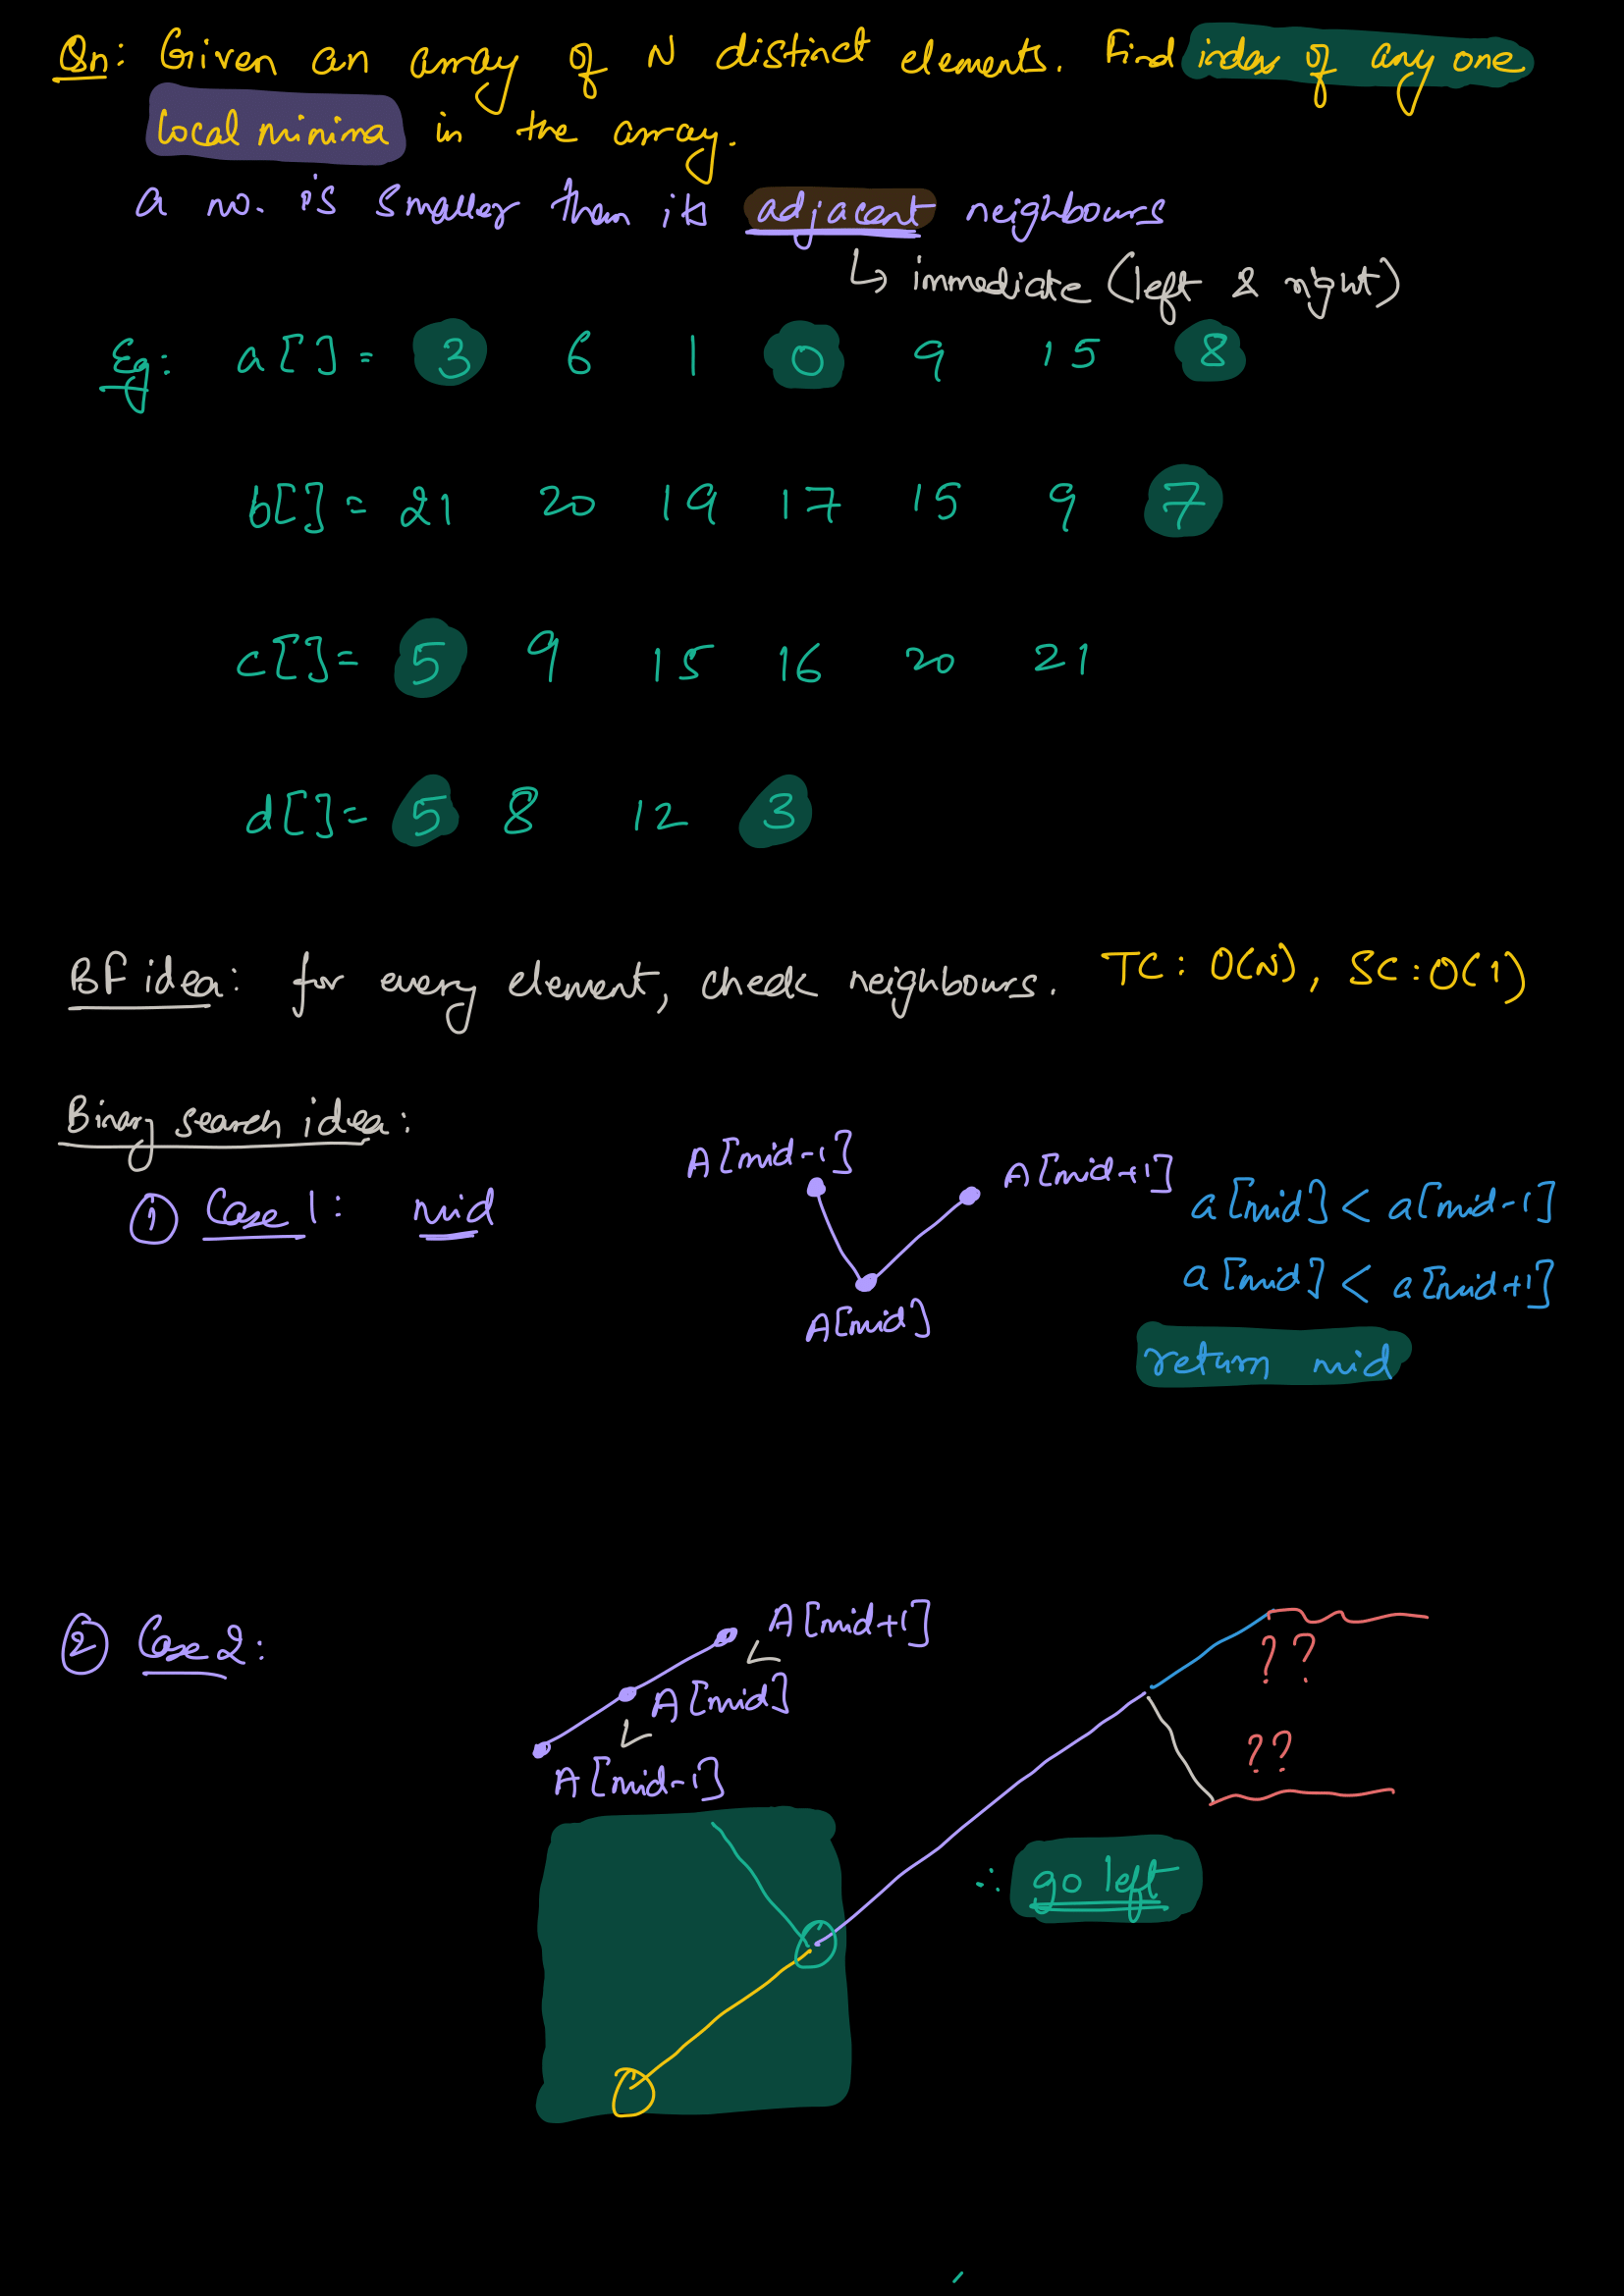 Qn: Given an array of N distinct elements. Find index of any one
local minima in the array.
a no. is smaller than its adjacent neighbours
↳ immediate (left & right)
Eg: a[] = 3 6 1 0 9 15 8
b[] = 21 20 19 17 15 9 7
c[] = 5 9 15 16 20 21
d[] = 5 8 12 3
BF idea: for every element, check neighbours. TC: O(N), SC: O(1)
Binary search idea:
① Case 1: mid
A[mid-1] A[mid+1]
A[mid]
a[mid] < a[mid-1]
a[mid] < a[mid+1]
return mid
② Case 2:
A[mid+1]
A[mid]
A[mid-1]
??
??
∴ go left